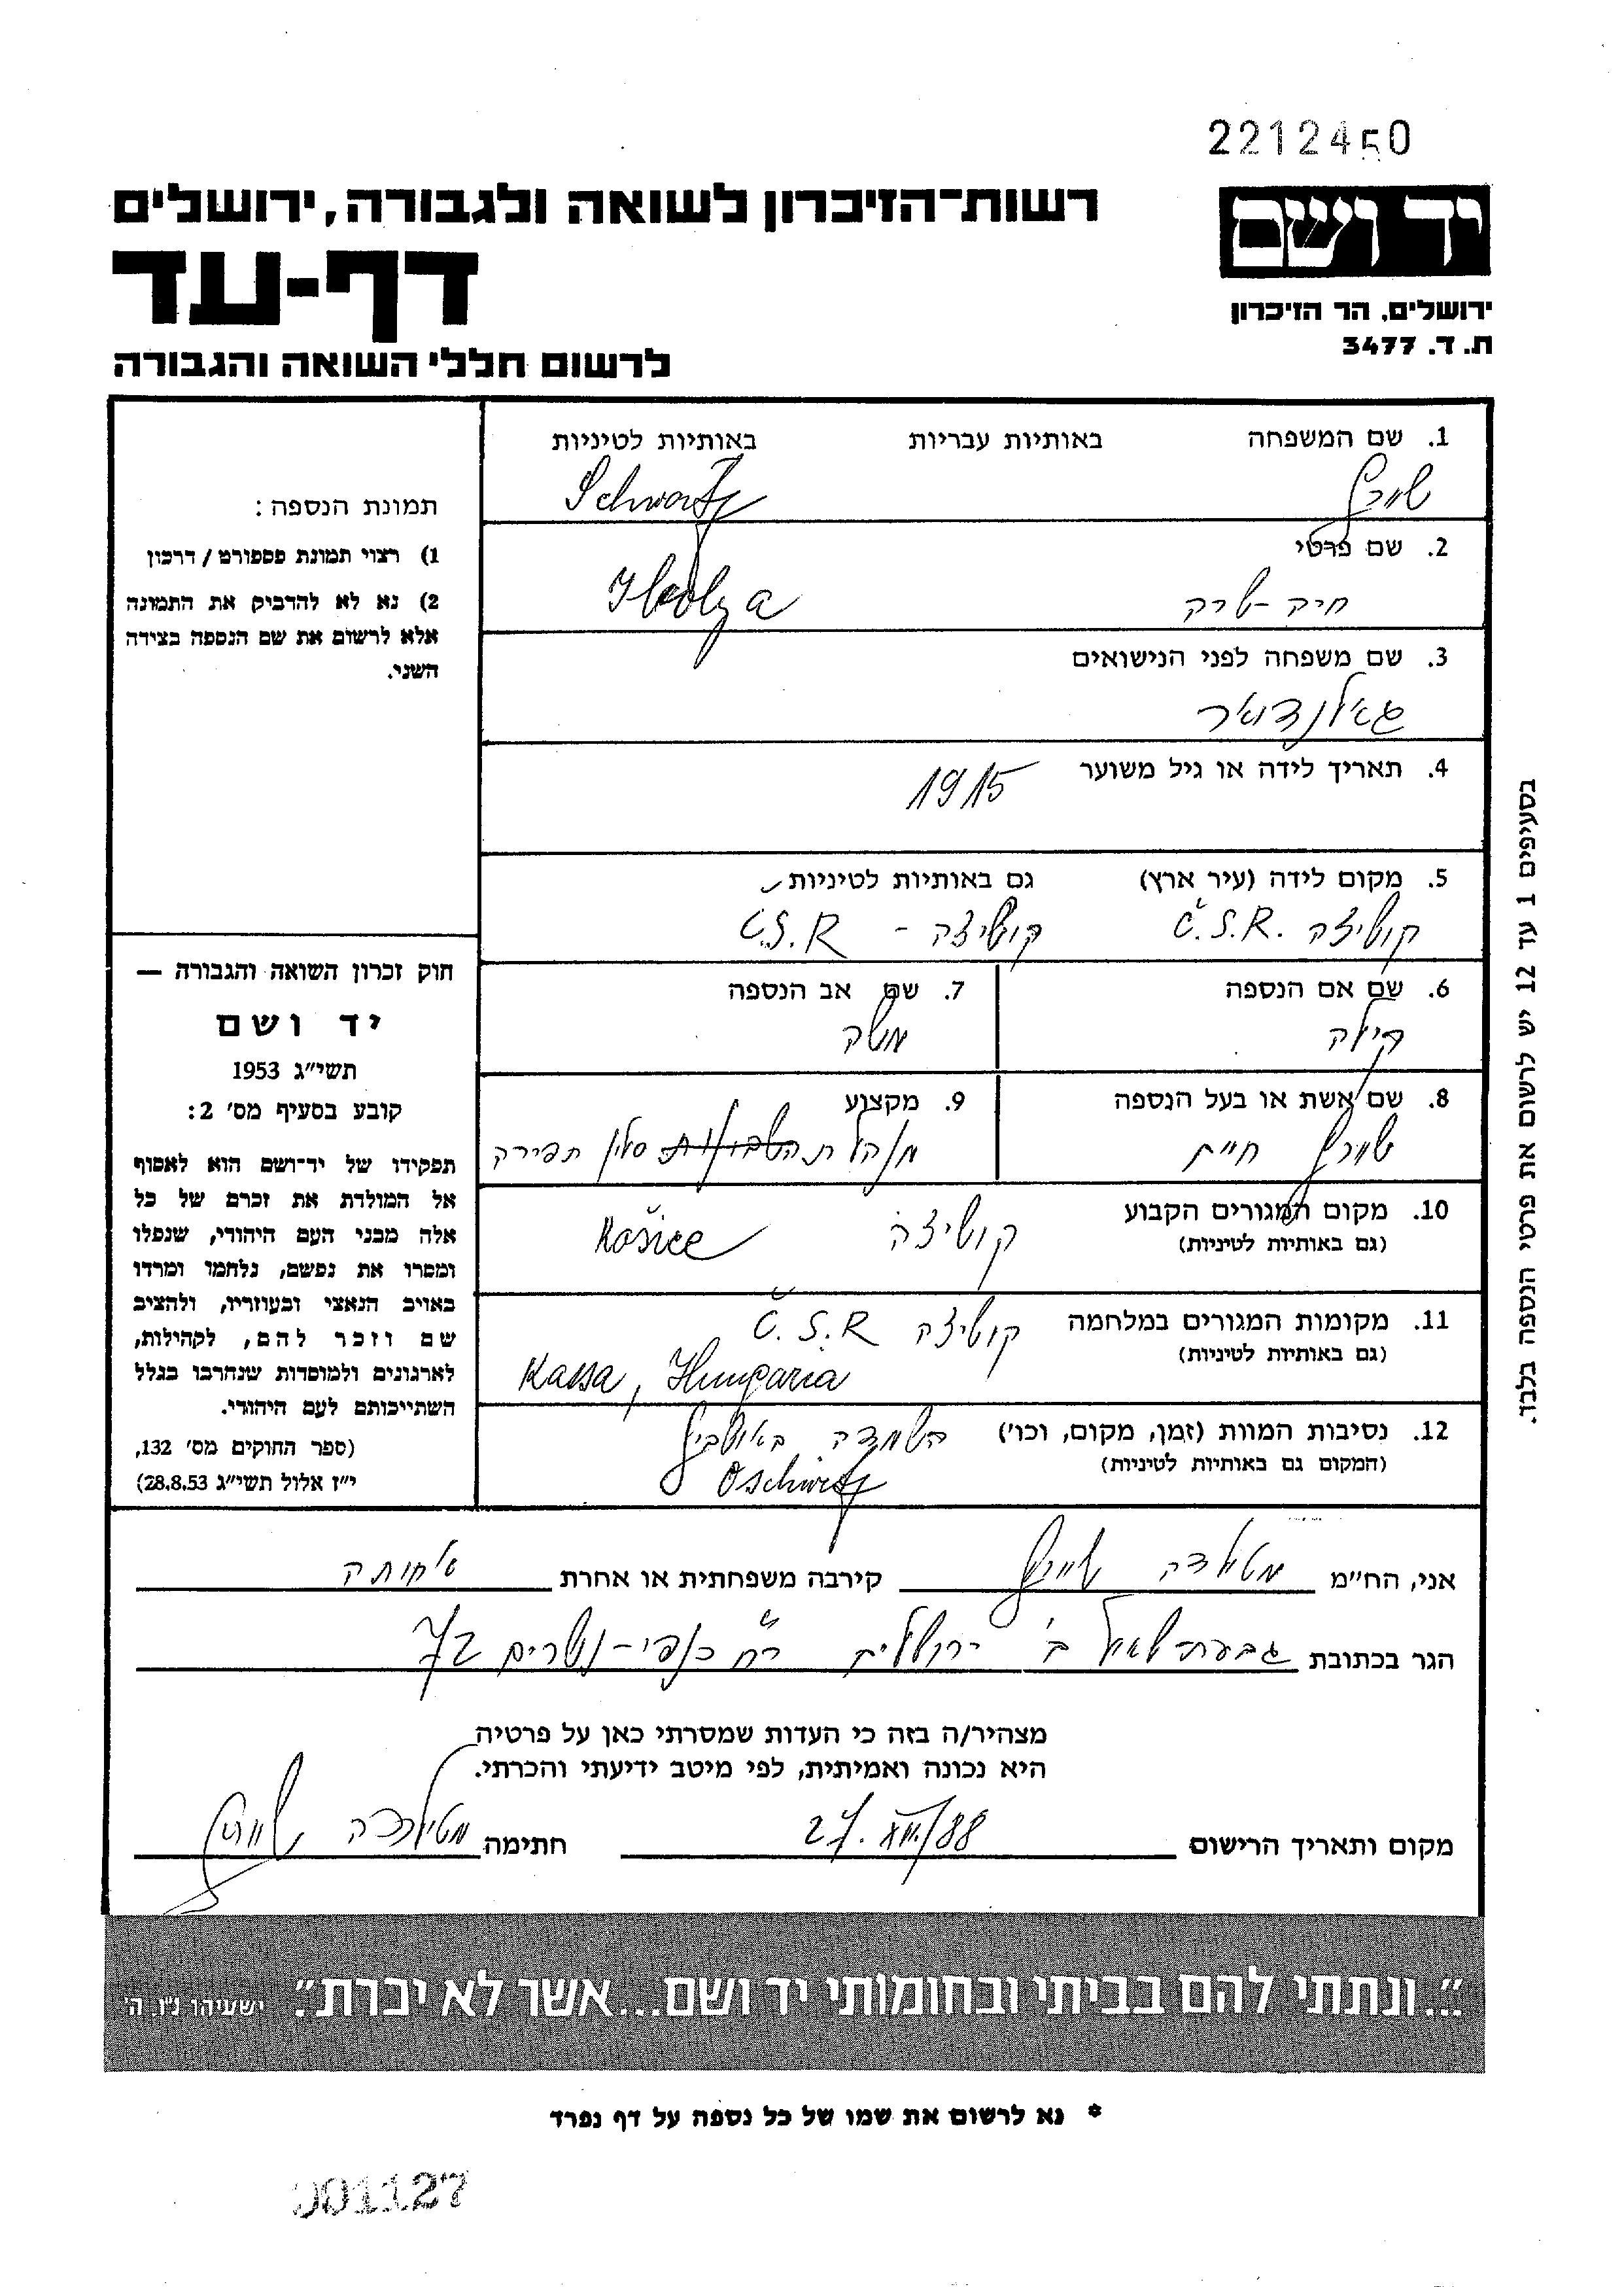 2212450
יד ושם
ירושלים, הר הזיכרון
ת. ד. 3477
רשות-הזיכרון לשואה ולגבורה, ירושלים
דף-עד
לרשום חללי השואה והגבורה
1. שם המשפחה באותיות עבריות באותיות לטיניות
שורץ Schwartz
2. שם פרטי
חיה-שרה
3. שם משפחה לפני הנישואים
4. תאריך לידה או גיל משוער
1915
5. מקום לידה (עיר ארץ) גם באותיות לטיניות
קושיצה Č.S.R. קושיצה - Č.S.R
6. שם אם הנספה 7. שם אב הנספה
משה
8. שם אשת או בעל הנספה 9. מקצוע
שורץ חיים מנהלת סלון תפירה
10. מקום המגורים הקבוע
(גם באותיות לטיניות)
קושיצה Košice
11. מקומות המגורים במלחמה
(גם באותיות לטיניות)
קושיצה Č.S.R
Kassa, Hungaria
12. נסיבות המוות (זמן, מקום, וכו')
(המקום גם באותיות לטיניות)
הושמדה באושביץ
Oschwitz
תמונת הנספה:
1) רצוי תמונת פספורט / דרכון
2) נא לא להדביק את התמונה
אלא לרשום את שם הנספה בצידה
השני.
חוק זכרון השואה והגבורה —
יד ושם
תשי״ג 1953
קובע בסעיף מס׳ 2:
תפקידו של יד-ושם הוא לאסוף
אל המולדת את זכרם של כל
אלה מבני העם היהודי, שנפלו
ומסרו את נפשם, נלחמו ומרדו
באויב הנאצי ובעוזריו, ולהציב
שם וזכר להם, לקהילות,
לארגונים ולמוסדות שנחרבו בגלל
השתייכותם לעם היהודי.
(ספר החוקים מס׳ 132,
י״ז אלול תשי״ג 28.8.53)
בסעיפים 1 עד 12 יש לרשום את פרטי הנספה בלבד.
אני, הח״מ מטילדה שוורץ קירבה משפחתית או אחרת אחותה
הגר בכתובת גבעת שאול ב' ירושלים רח' כנפי-נשרים 7/2
מצהיר/ה בזה כי העדות שמסרתי כאן על פרטיה
היא נכונה ואמיתית, לפי מיטב ידיעתי והכרתי.
מקום ותאריך הרישום 27. XII./88 חתימה מטילדה שוורץ
״...ונתתי להם בביתי ובחומותי יד ושם...אשר לא יכרת״. ישעיהו נ״ו, ה׳
* נא לרשום את שמו של כל נספה על דף נפרד
001127